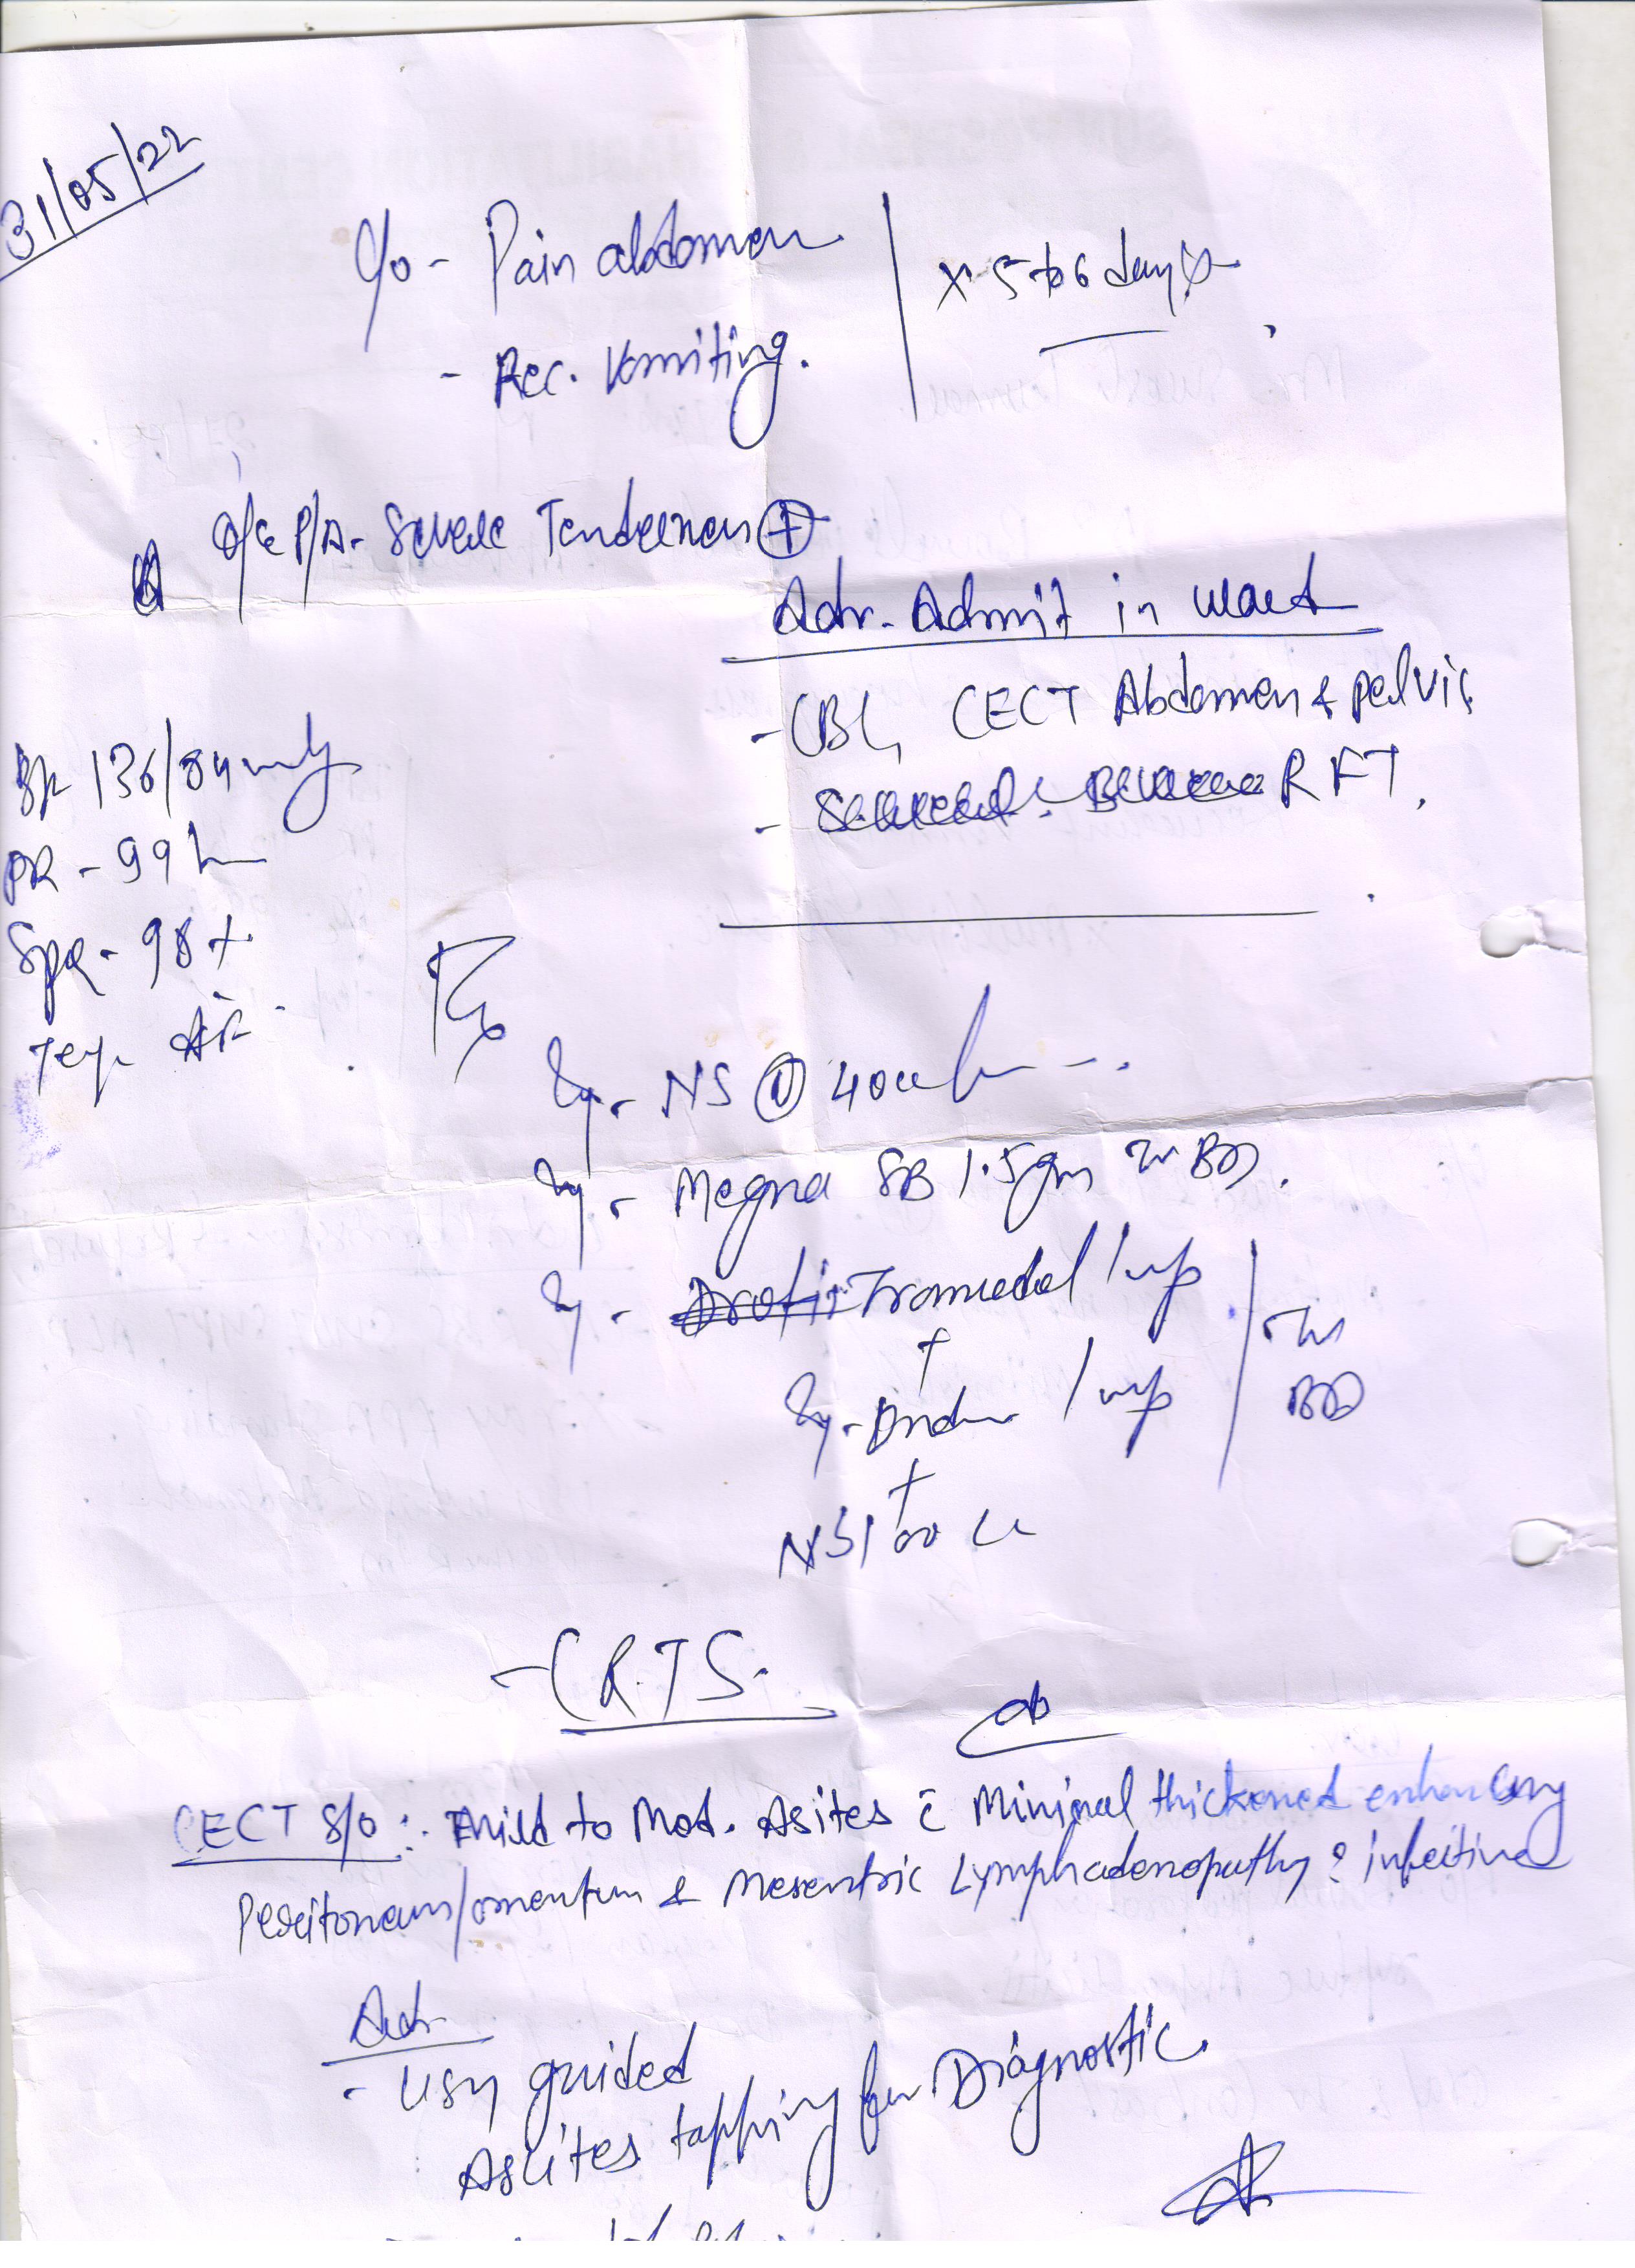 31/05/22
C/o - Pain abdomen
- Rec. Vomiting.
x 5 to 6 days
O/E P/A - Severe Tenderness ⊕
Adv. Admit in ward
- CBC, CECT Abdomen & pelvic
- RFT.
BP 136/84
PR - 99
SpO2 - 98 %
Temp
Rx
Inj - NS ① 40cc/hr
Inj - Magna SB 1.5gm IV BD.
Inj - Tramadol 1 amp
+
Inj - 1 amp
BD
+
NS 100 cc
- CRTS.
CECT S/o :- Mild to Mod. Asites c̄ Minimal thickened enhancing
Peritoneum/omentum & Mesentric Lymphadenopathy ? infective
Adv
- USG guided
Asites tapping for Diagnostic.